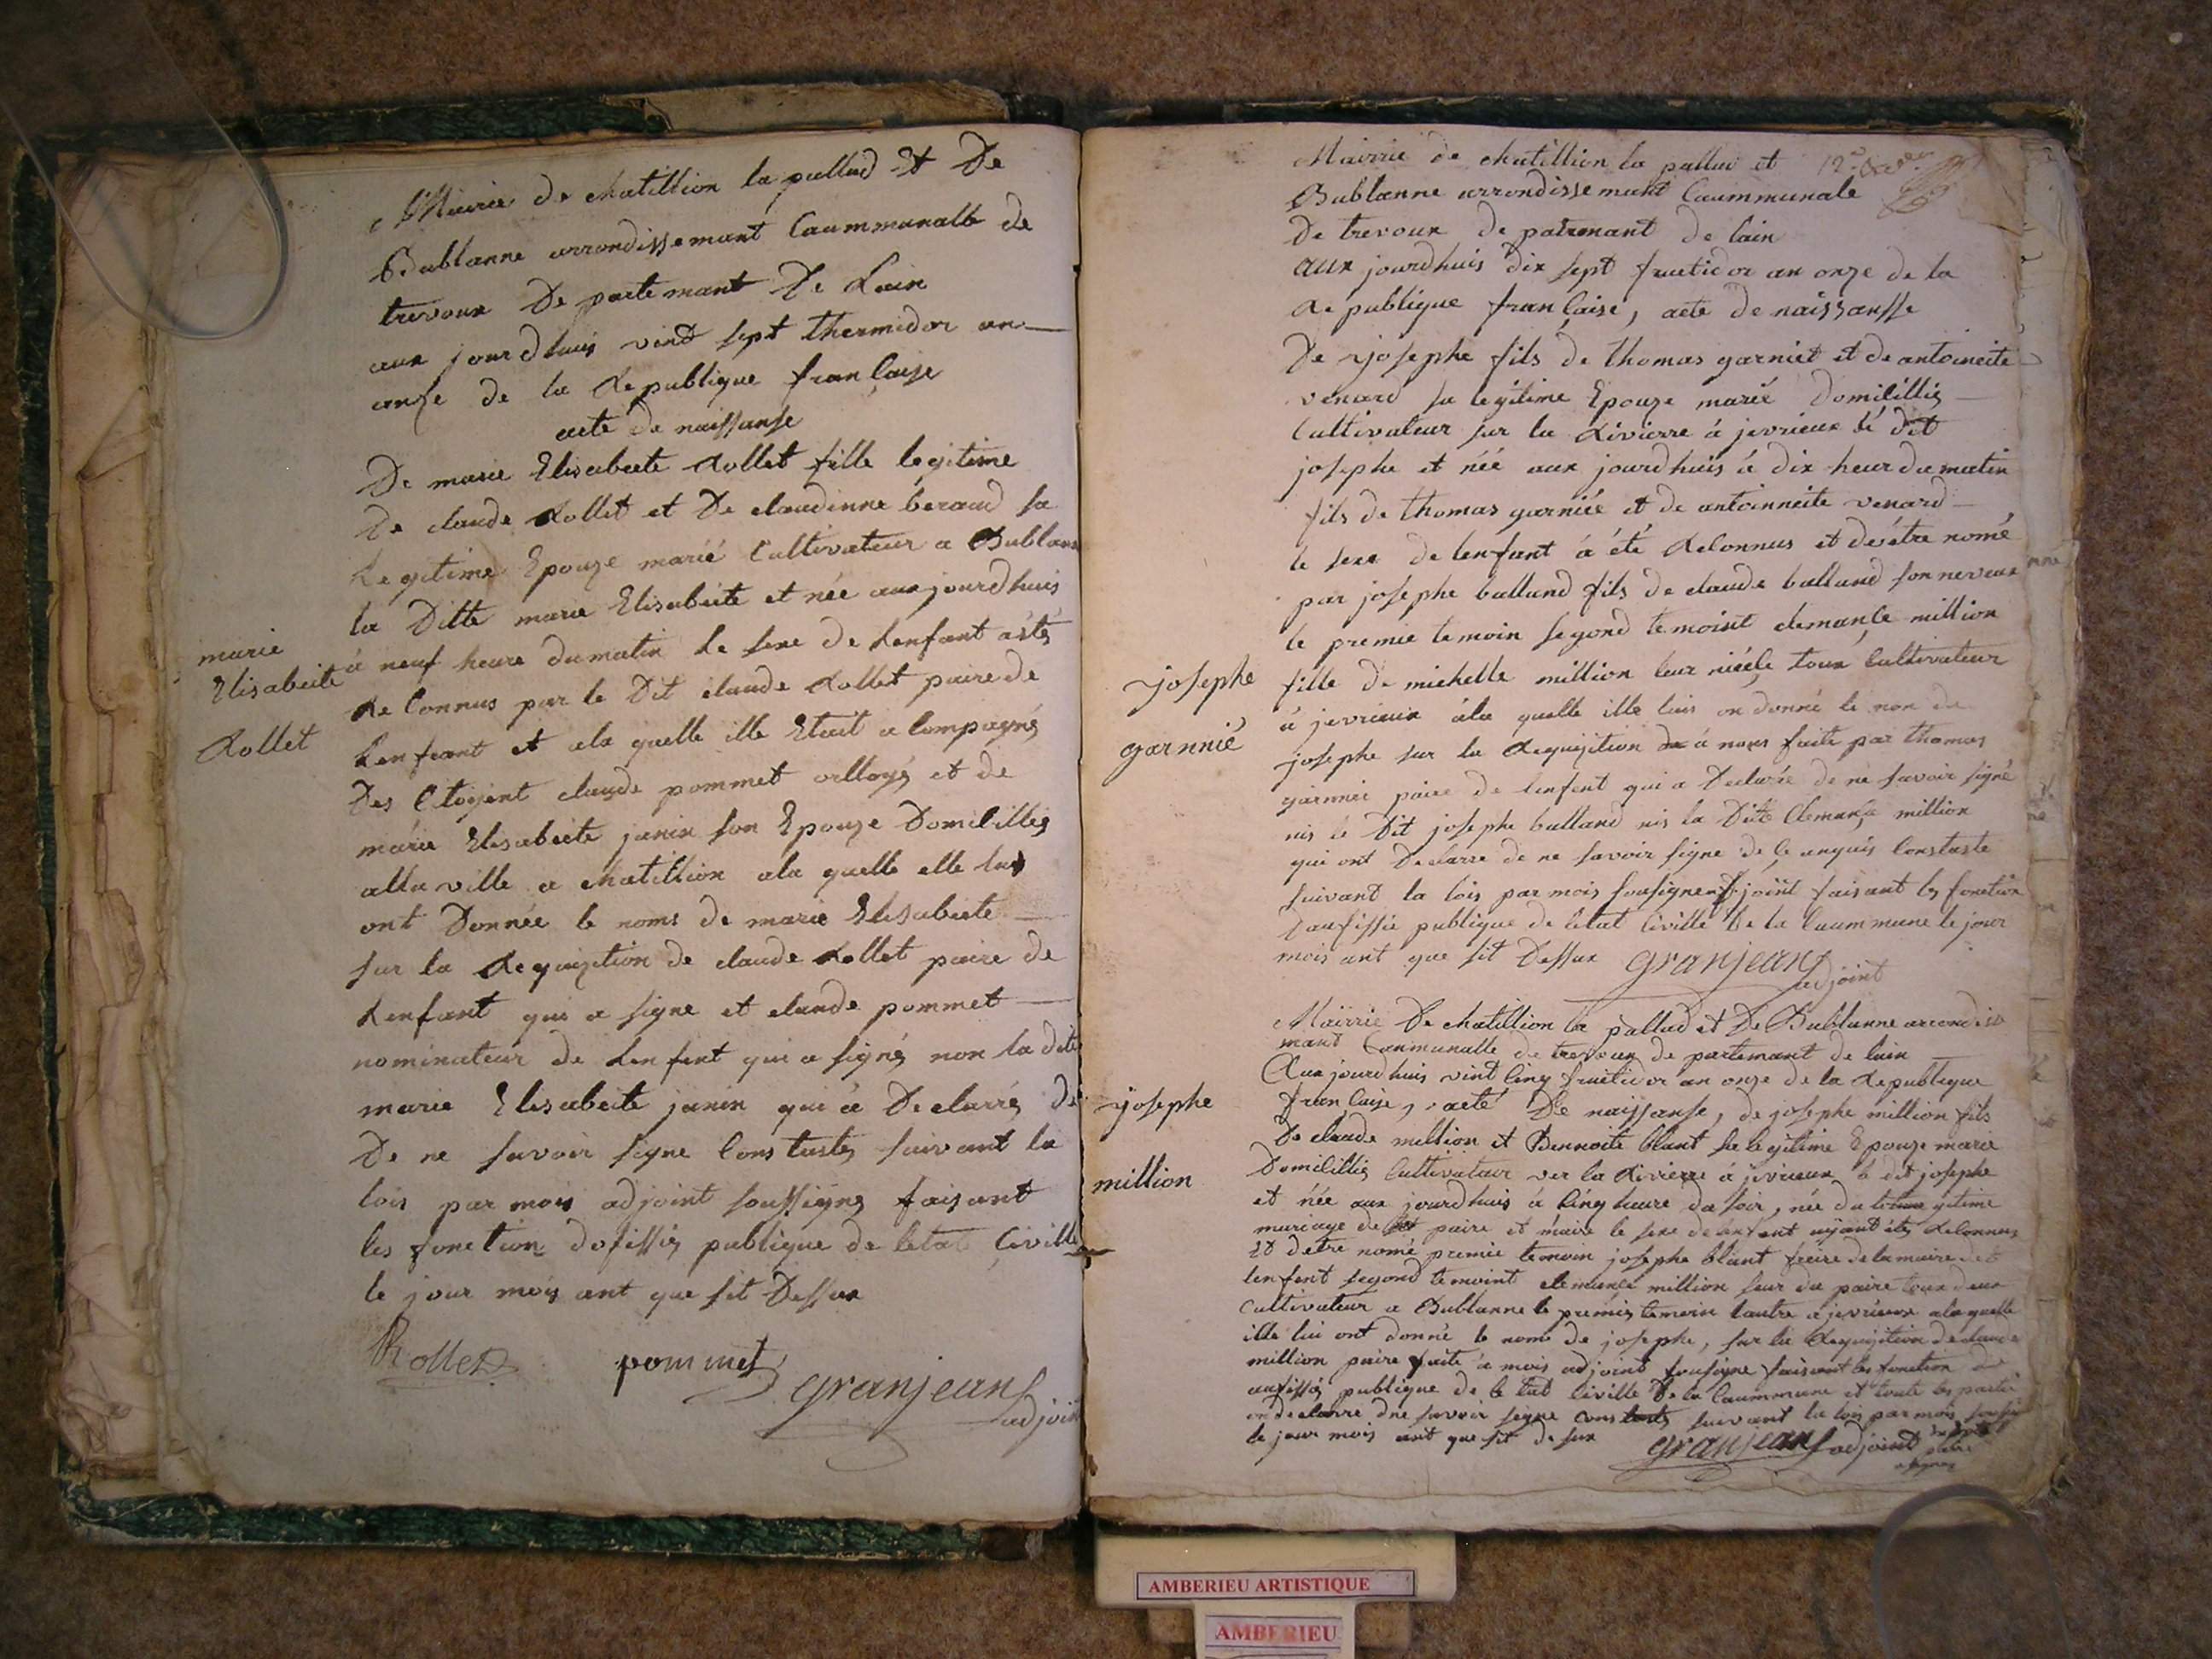 Mairie de chatillion la pallud et De
Bublanne arrondissemant Caummunalle de
trevoux De partemant De Lain
aux jourdhuis vint sept thermidor an
onze de la Republique francaise
acte de naissanse
De marie Elisabeete Rollet fille legitime
De claude Rollet et De claudinne beraud sa
Legitime Epouze marié Cultivateur a Bublane
la Ditte marie Elisabeete et née aux jourdhuis
marie
Elisabeete
Rollet
à neuf heure dumatin Le sexe de Lenfant àétés
Reconnus par le Dit claude Rollet paire de
Lenfeant et ala quelle ille Etait acompagnés
Des Citoyent claude pommet orlogé et de
marie Elisabeete janin son Epouze Domicilliés
alla ville a chatillion ala quelle elle lus
ont Donnée le noms de marie Elisabeete
sur la Requizition de claude Rollet paire de
Lenfant qui a signe et claude pommet
nominateur de Lenfent qui a signés non la dite
marie Elisabeete janin qui à Declarrés De
De ne savoir signe Constastes suivant la
lois par mois adjoint soussignes faisant
les fonction dofissies publique de letat Civille
le jour mois ant que sit Dessux
Rollet pommet granjean adjoint
Mairrie de chatillion la pallud et
Bublanne arrondissemant Caummunale
De trevoux De patremant de lain
aux jourdhuis dix sept fructidor an onze de la
Republique francaise, acte de naissansse
De josephe fils de thomas garniet et de antoineite
venard sa legitime Epouze marié Domicilliés
Cultivateur sur la Rivierre à jevrieux le dit
josephe et née aux jourdhuis à dix heur du matin
fils de thomas garniée et de antoinneite venard
le sexe de lenfant à été Reconnus et deêtre nomé
par josephe balland fils de claude balland son neveux
le premie temoin segond temoint clemance million
josephe
garnnié
fille de michelle million leur nièèce toux Cultivateur
à jevrieux àla quelle ille luis on donné le non de
josephe sur la Requizition à nous faite par thomas
garnnier paire de lenfent qui a Declarée de ne savoir signé
nis le Dit josephe balland nis la Ditte Clemance million
qui ont Declarre de ne savoir signe de ce anquis Constaste
suivant la lois par mois sousigne adjoint faisant les fonction
Daufissié publique de letat Civille De la Caummune le jour
mois ant que sit Dessux granjean adjoint
Mairrie De chatillion la pallud et De Bublanne arrondise
mant Caumunalle de trevoux de partemant de lain
Aux jourdhuis vint cinq fructidor an onze de la Republique
francaise, acte De naissanse, de josephe million fils
josephe
million
De claude million et Bennoite blant sa legitime Epouze marié
Domicilliés Cultivateur ver la Rivierre à jevrieux le dit josephe
et née aux jourdhuis à cinq heure du soir, née du legitime
mariage de paire et maire le sexe de lenfent ayant été Reconnus
Et detre nomé premie temoin josephe blant freire de la maire de
lenfent segond temoint clemance million seur du paire toux deux
Cultivateur a Bublanne le premiés temoin lautre a jevrieux ala quelle
ille lui ont donné le nome de josephe, sur la Requizition de claude
million paire faite à mois adjoint sousigne faisant les fonction de
aufissés publique de le tat Civille De la Caummune et toute les partie
on declarre dne savoir signe constastes suivant la lois par mois
le jour mois ant que sit desux granjean adjoint
AMBERIEU ARTISTIQUE
AMBERIEU